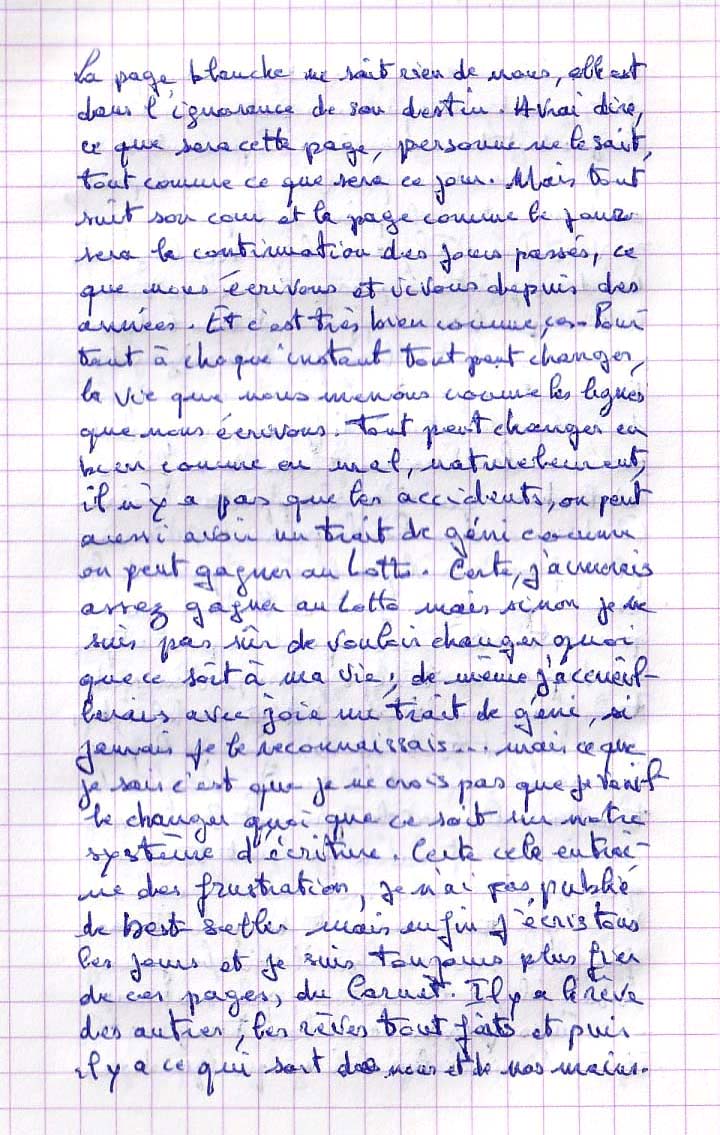 La page blanche ne sait rien de nous, elle est
dans l'ignorance de son destin. A vrai dire,
ce que sera cette page, personne ne le sait,
tout comme ce que sera ce jour. Mais tout
suit son cour et la page comme le jour
sera la continuation des jours passés, ce
que nous écrivons et vivons depuis des
années. Et c'est très bien comme ça. Pour
tant à chaque instant tout peut changer,
la vie que nous menons comme les lignes
que nous écrivons. Tout peut changer en
bien comme en mal, naturellement,
il n'y a pas que les accidents, on peut
aussi avoir un trait de géni comme
on peut gagner au Lotto. Certe, j'aimerais
assez gagner au Lotto mais sinon je ne
suis pas sûr de vouloir changer quoi
que ce soit à ma vie; de même j'accueil-
lerais avec joie un trait de géni, si
jamais je le reconnaissais... mais ce que
je sais c'est que je ne crois pas que je veuil-
le changer quoi que ce soit sur notre
système d'écriture. Certe cela entraî-
ne des frustration, je n'ai pas publié
de best-seller mais enfin j'écris tous
les jours et je suis toujours plus fier
de ces pages, du Carnet. Il y a le rêve
des autres, les rêves tout faits et puis
il y a ce qui sort de nous et de nos mains.